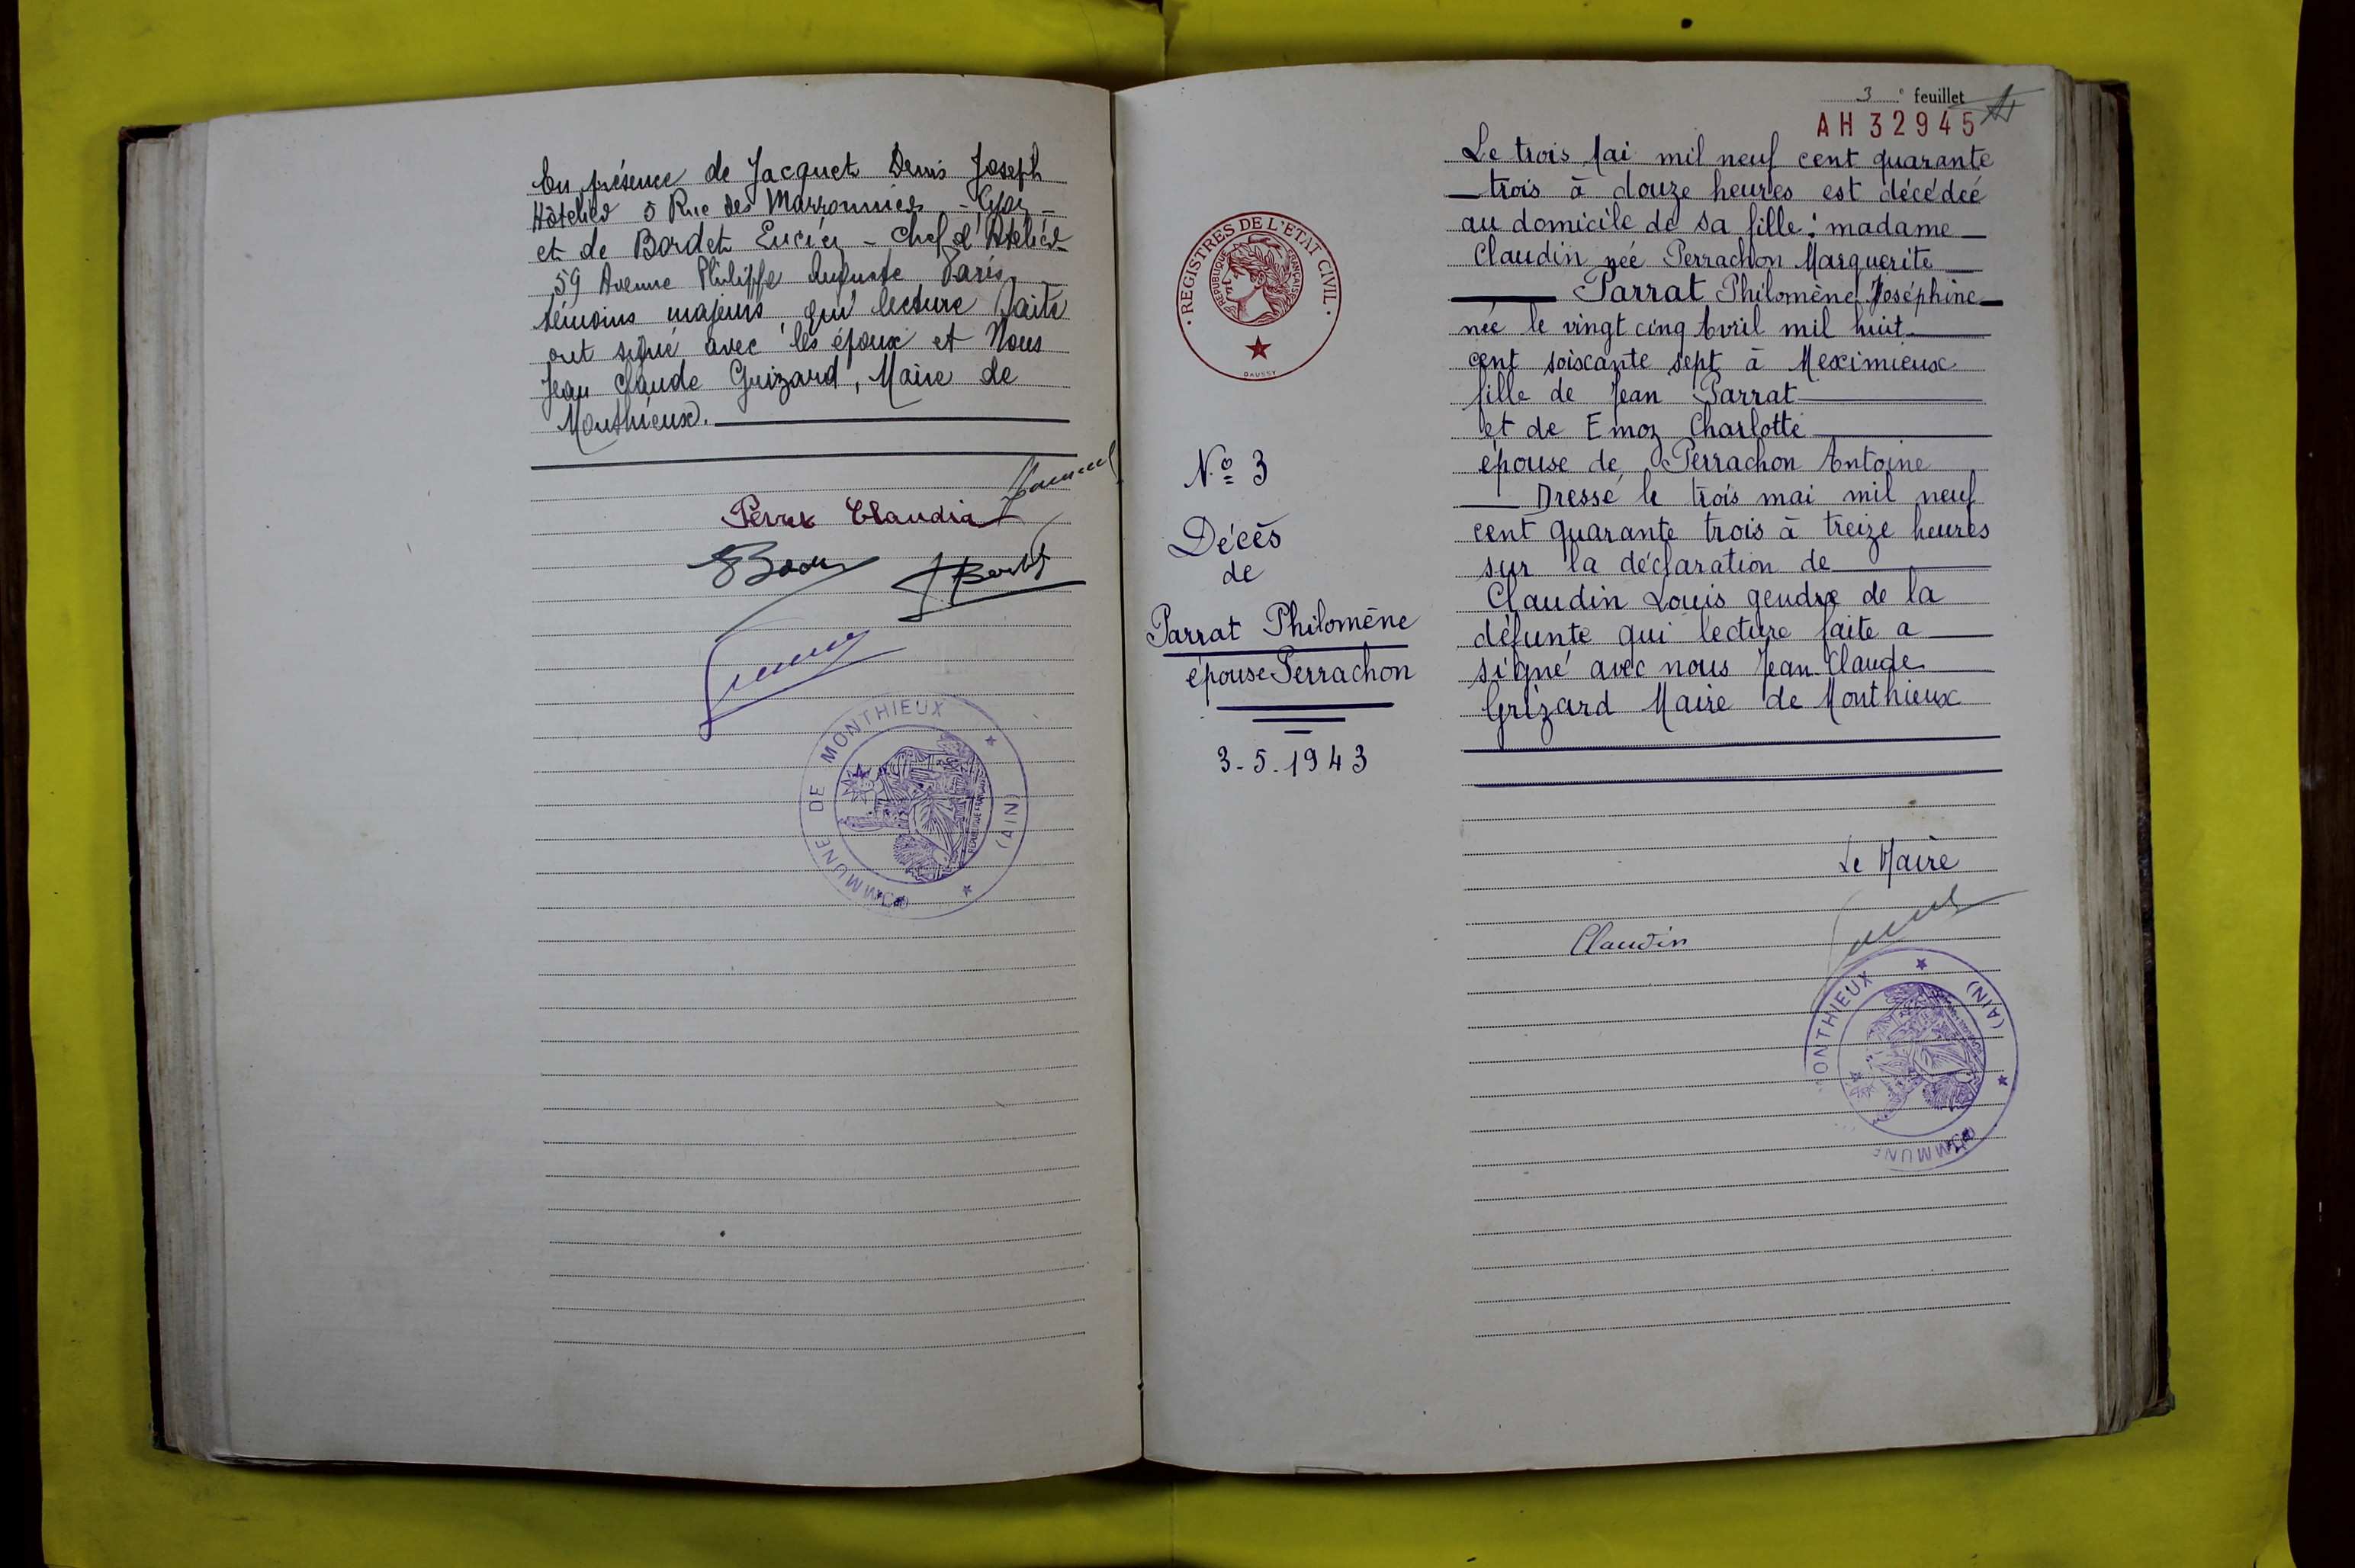 En présence de Jacquet Denis Joseph
Hôtelier 5 Rue des Marronniers - Lyon -
et de Bordet Lucien - chef d'Atelier
59 Avenue Philippe Auguste Paris
témoins majeurs qui lecture faite
ont signé avec les époux et Nous
Jean Claude Grizard, Maire de
Monthieux.
Perret Claudia
COMMUNE DE MONTHIEUX
(AIN)
RÉPUBLIQUE FRANÇAISE
REGISTRES DE L'ETAT CIVIL
REPUBLIQUE FRANÇAISE
DAUSSY
No 3
Décès
de
Parrat Philomène
épouse Perrachon
3-5-1943
3e feuillet
AH 32945
Le trois Mai mil neuf cent quarante
trois à douze heures est décédée
au domicile de sa fille : madame
Claudin née Perrachon Marguerite
Parrat Philomène Joséphine
née le vingt cinq Avril mil huit
cent soixante sept à Meximieux
fille de Jean Parrat
et de Emoz Charlotte
épouse de Perrachon Antoine
Dressé le trois mai mil neuf
cent quarante trois à treize heures
sur la déclaration de
Claudin Louis gendre de la
défunte qui lecture faite a
signé avec nous Jean Claude
Grizard Maire de Monthieux
Le Maire
Claudin
COMMUNE MONTHIEUX
(AIN)